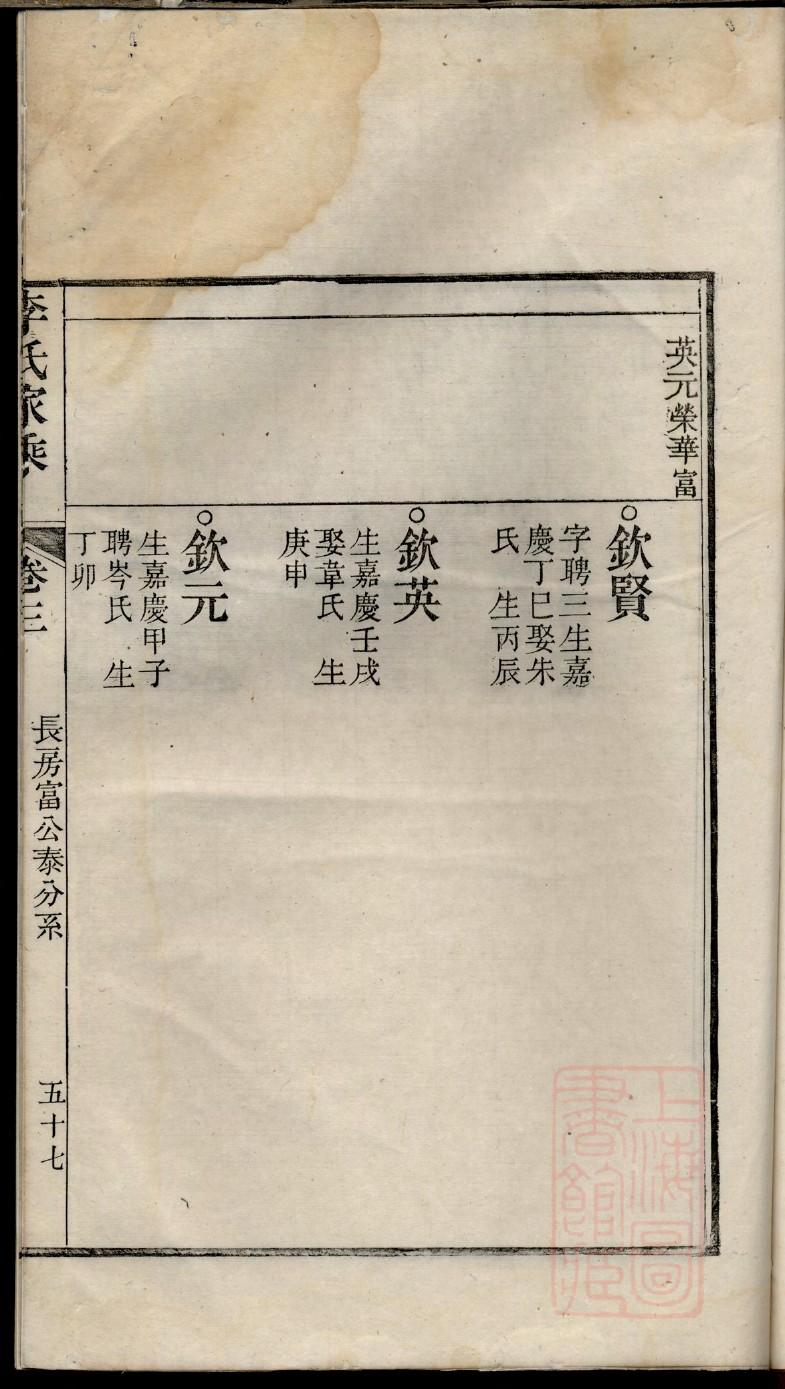 英元榮華富
欽賢
字聘三生嘉
慶丁巳娶朱
氏 生丙辰
欽英
生嘉慶壬戌
娶韋氏 生
庚申
欽元
生嘉慶甲子
聘岑氏 生
丁卯
李氏家乘
卷三
長房富公泰分系
五十七
上海圖
書館藏